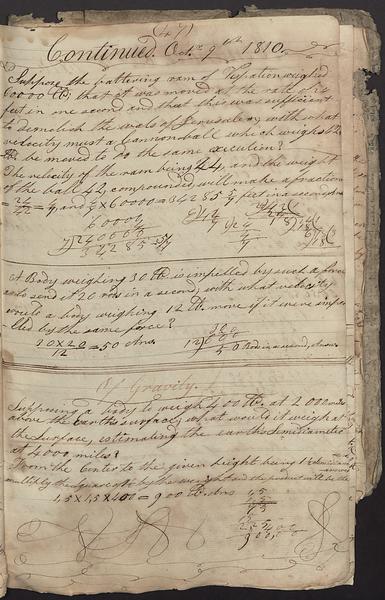 (47)
Continued. Octr. 9th 1810.
Suppose the battering ram of Vespation weighed
60000 lb; that it was moved at the rate of 24
feet in one second and that this was sufficient
to demolish the walls of Jerusalem, with what
velocity must a Cannonball which weighs 42
lb be moved to do the same execution?
The velocity of the ram being 24, and the weight
of the ball 42, compounded, will make a fraction
24/42 = 4/7 and 4/7 X 60000 = 34285 5/7 feet in a second, Ans
60000
4
7)240000
34285 5/7
A Body weighing 30 lb is impelled by such a force
as to send it 20 rods in a second; with what velocity
would a body weighing 12 lb move if it were impel
led by the same force?
30 X 20
12 = 50 Ans
12
50 Rods in a second, Answer
Of Gravity.
Supposing a body to weigh 400 lb at 2000 miles
above the earth's surface, what would it weigh at
the surface, estimating the earth's Semidiameter
at 4000 miles?
From the Center to the given height being 1½
multiply the Square of by the weight and the product will be the
1,5 X 1,5 X 400 = 900 lb. Ans
1,5
1,5
75
15
225
400
900,